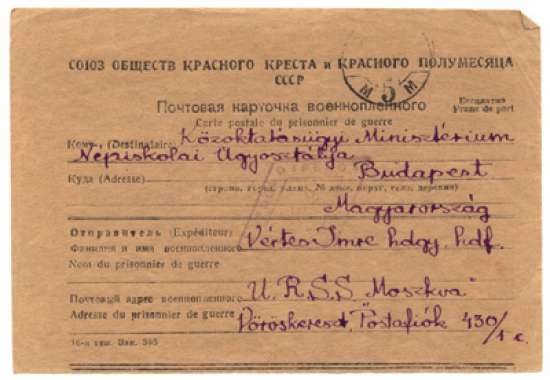 СОЮЗ ОБЩЕСТВ КРАСНОГО КРЕСТА и КРАСНОГО ПОЛУМЕСЯЦА
СССР
М 5 М
Почтовая карточка военнопленного
Carte postale du prisonnier de guerre
Бесплатно
Franc de port
Кому (Destinataire) Közoktatásügyi Minisztérium
Népiskolai Ügyosztálya
Куда (Adresse) Budapest
(страна, город, улица, № дома, округ, село, деревня)
Magyarország
Отправитель (Expéditeur)
Фамилия и имя военнопленного Vértes Imre hdgy. hdf.
Nom du prisonnier de guerre
Почтовый адрес военнопленного U.R.S.S. "Moszkva"
Adresse du prisonnier de guerre Vöröskereszt, "Postafiók 430/1 c.
16-я тип. Зак. 595